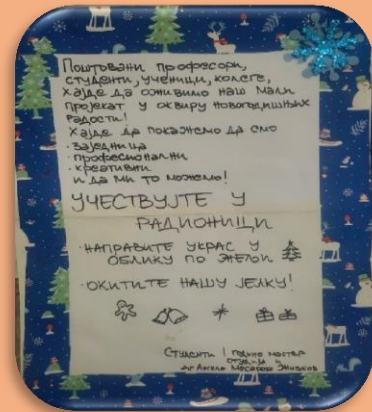 Поштовани професори,
студенти, ученици, колеге,
Хајде да оживимо наш мали
пројекат у оквиру новогодишњих
радости!
Хајде да покажемо да смо
· заједница
· професионални
· креативни
и да ми то можемо!
УЧЕСТВУЈТЕ У
РАДИОНИЦИ
· НАПРАВИТЕ УКРАС У
ОБЛИКУ ПО ЖЕЉИ
· ОКИТИТЕ НАШУ ЈЕЛКУ!
Студенти I године мастер
студија и
др Ангела Месарош Живков